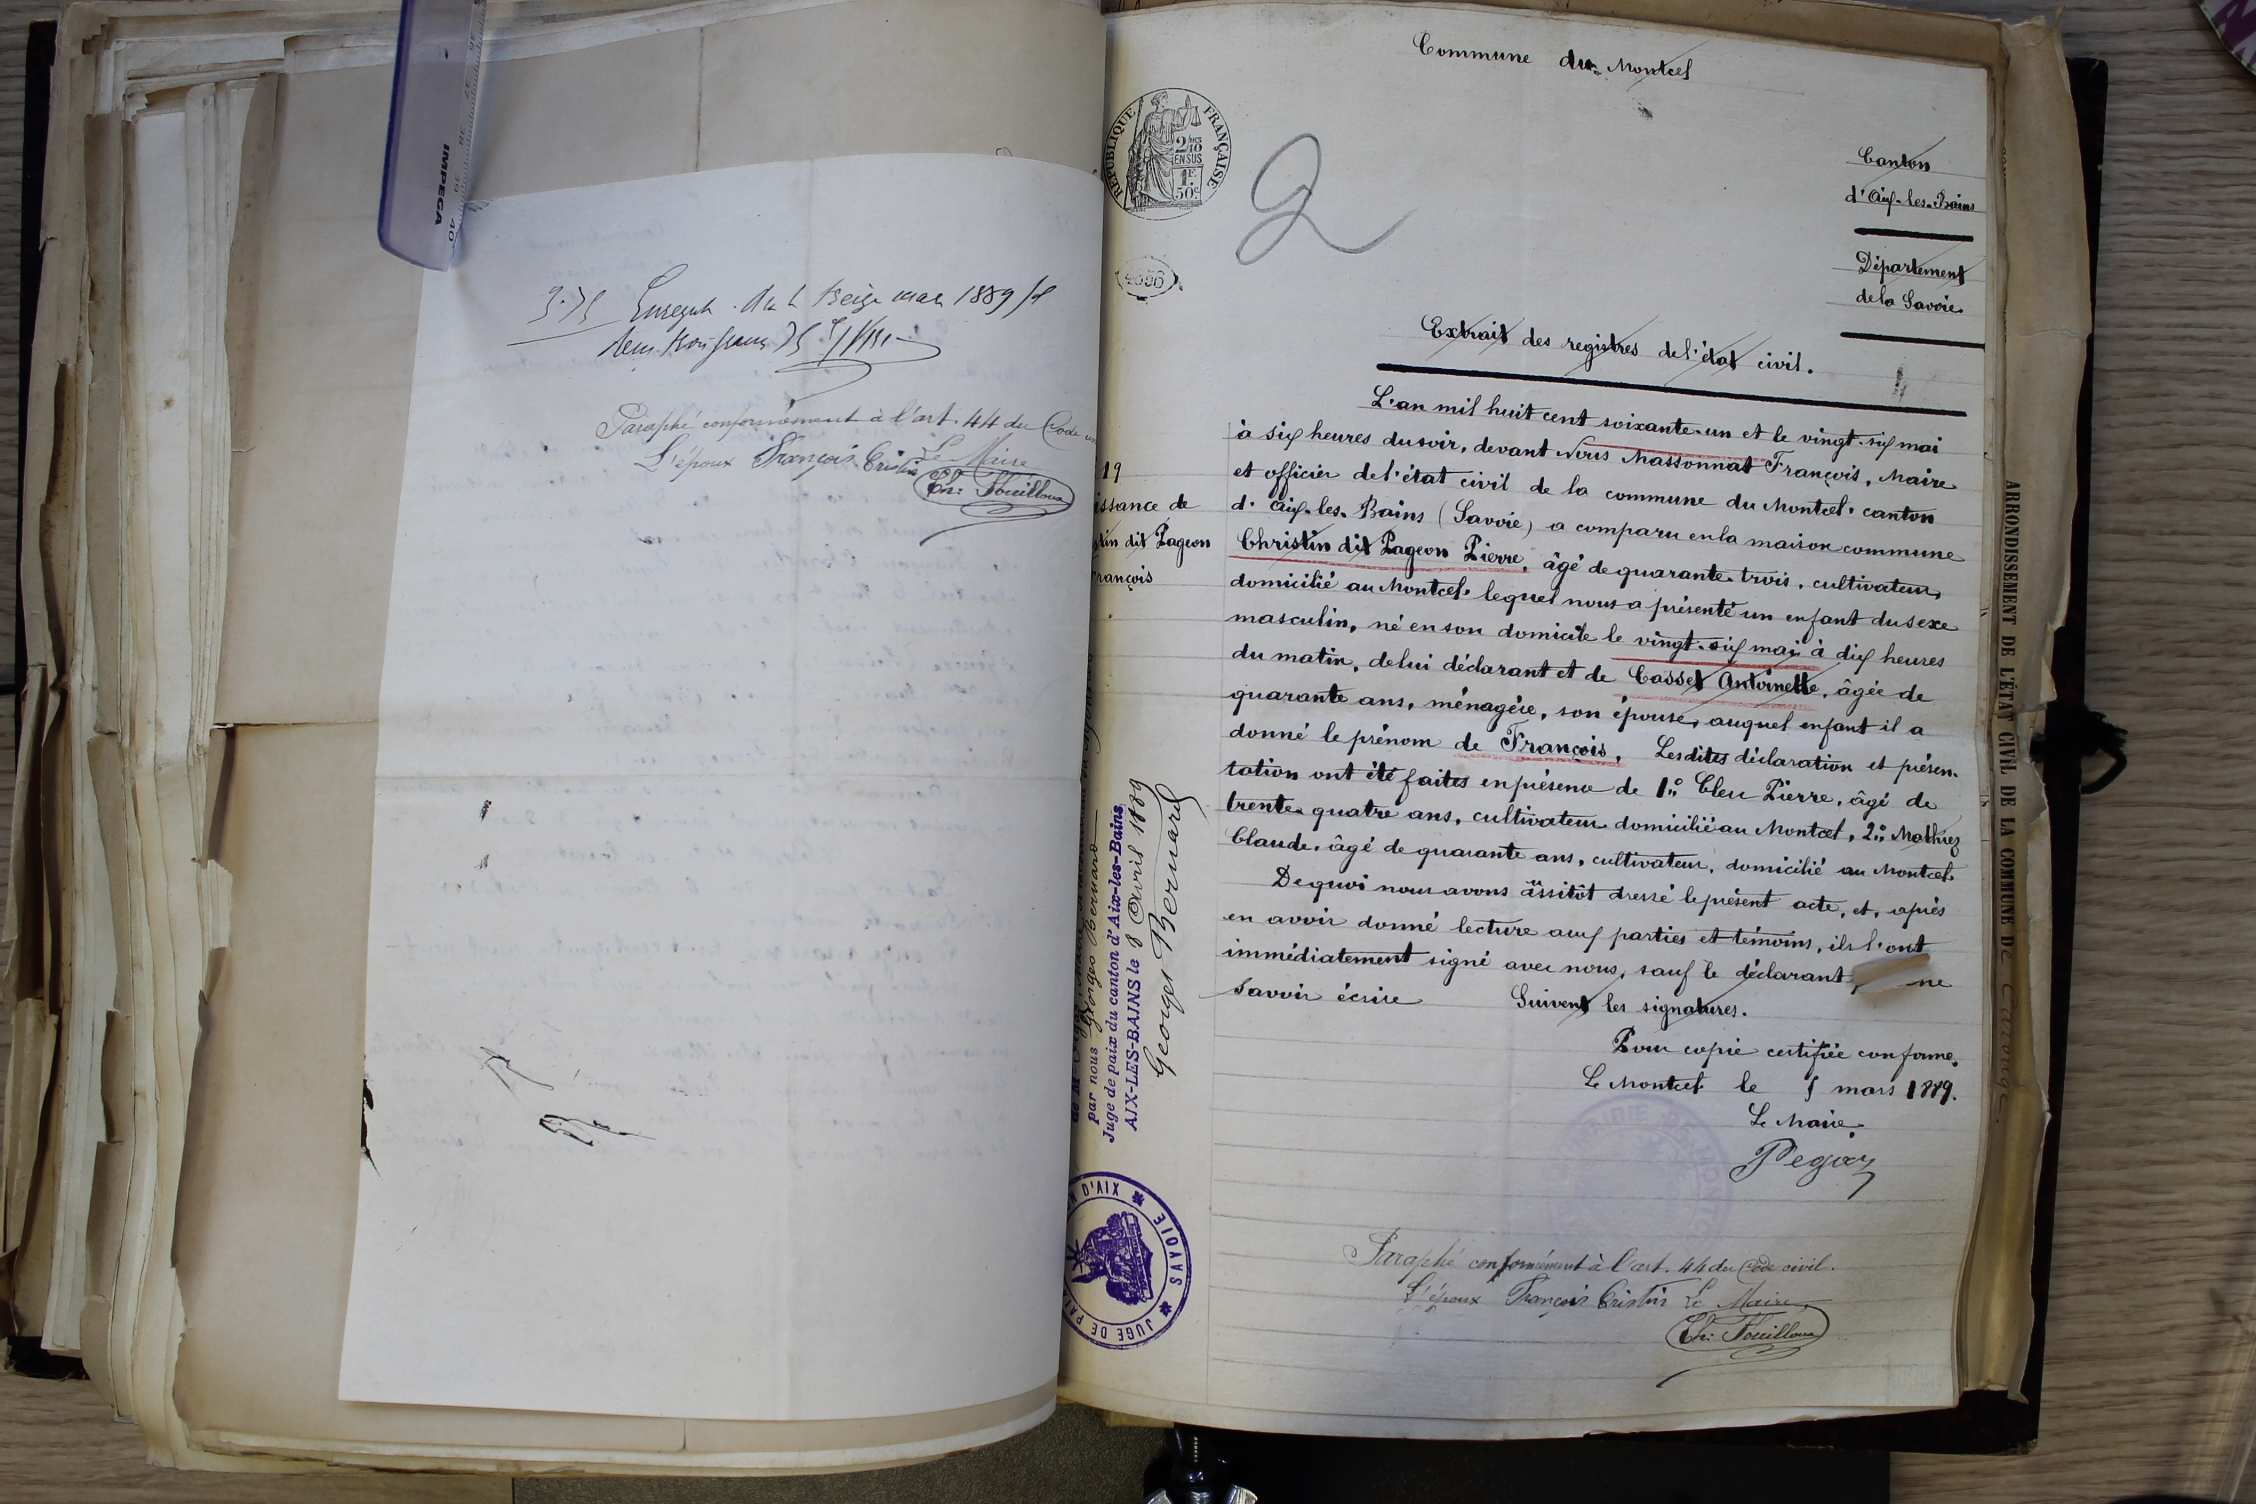 IMPEGA 40 39 38 37
Treize mars 1889
Paraphé conformément à l'art. 44 du Code
L'époux François Cristin Le Maire
Ch: Fouilloux
Commune du Montcel
RÉPUBLIQUE FRANÇAISE
2/10 EN SUS
1F.
50c.
2
Canton
d'Aix-les-Bains
Département
de la Savoie.
Extrait des registres de l'état civil.
19
issance de
stin dit Pageon
rançois
L'an mil huit cent soixante-un et le vingt-six mai
à six heures du soir, devant Nous Massonnat François, Maire
et officier de l'état civil de la commune du Montcel, canton
d'Aix-les-Bains (Savoie) a comparu en la maison commune
Christin dit Pageon Pierre, âgé de quarante-trois, cultivateur,
domicilié au Montcel, lequel nous a présenté un enfant du sexe
masculin, né en son domicile le vingt-six mai à dix heures
du matin, de lui déclarant et de Casset Antoinette, âgée de
quarante ans, ménagère, son épouse, auquel enfant il a
donné le prénom de François. Lesdites déclaration et présen-
tation ont été faites en présence de 1º Cleu Pierre, âgé de
trente-quatre ans, cultivateur domicilié au Montcel, 2º Mathiez
Claude, âgé de quarante ans, cultivateur, domicilié au Montcel.
De quoi nous avons assitôt dressé le présent acte, et, après
en avoir donné lecture aux parties et témoins, ils l'ont
immédiatement signé avec nous, sauf le déclarant, ne
savoir écrire Suivent les signatures.
Pour copie certifiée conforme.
Le Montcel le 5 mars 1889.
Le Maire.
Paraphé conformément à l'art. 44 du Code civil.
L'époux François Cristin Le Maire,
Ch: Fouilloux
par nous Georges Bernard
Juge de paix du canton d'Aix-les-Bains
AIX-LES-BAINS le 8 Avril 1889
Georges Bernard
N D'AIX * SAVOIE * JUGE DE PAIX
ARRONDISSEMENT DE L'ÉTAT CIVIL DE LA COMMUNE DE